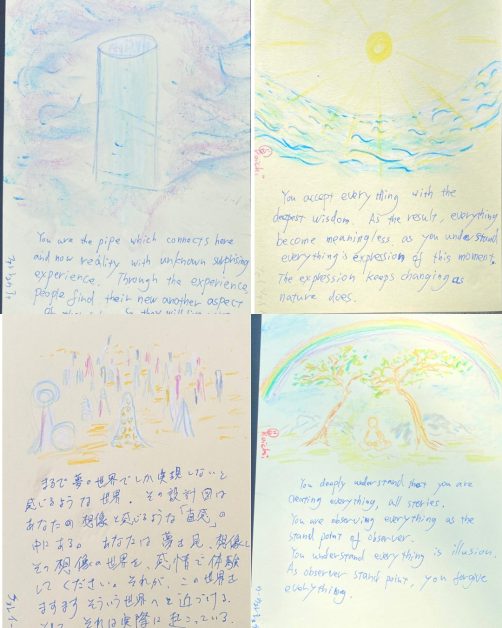 You are the pipe which connects here
and now reality with unknown surprising
experience. Through the experience,
people find their new another aspect
Koichi
You accept everything with the
deepest wisdom. As the result, everything
become meaningless as you understand
everything is expression of this moment.
The expression keeps changing as
nature does.
まるで夢の世界でしか実現しないと
感じるような世界。その設計図は
あなたの想像と感じるような「直感」の
中にある。あなたは夢を見、想像し
その想像の世界を、感情で体験
してください。それが、この世界を
ますますそういう世界へと近づける。
それは実際に起こっている。
Koichi
You deeply understand that you are
creating everything, all stories.
You are observing everything as the
stand point of observer.
You understand everything is illusion.
As observer stand point, you forgive
everything.